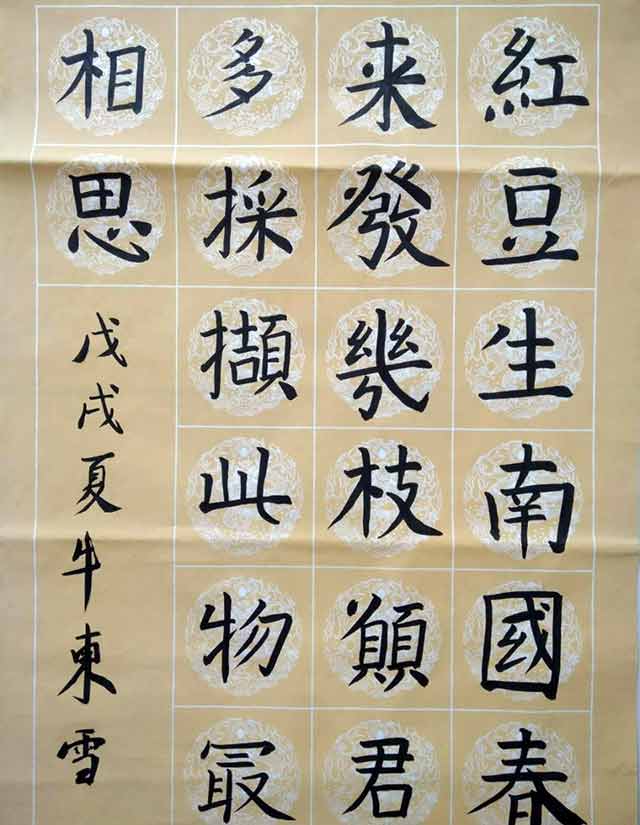 紅豆生南國春
来發幾枝願君
多採擷此物冣
相思
戊戌夏牛東雪